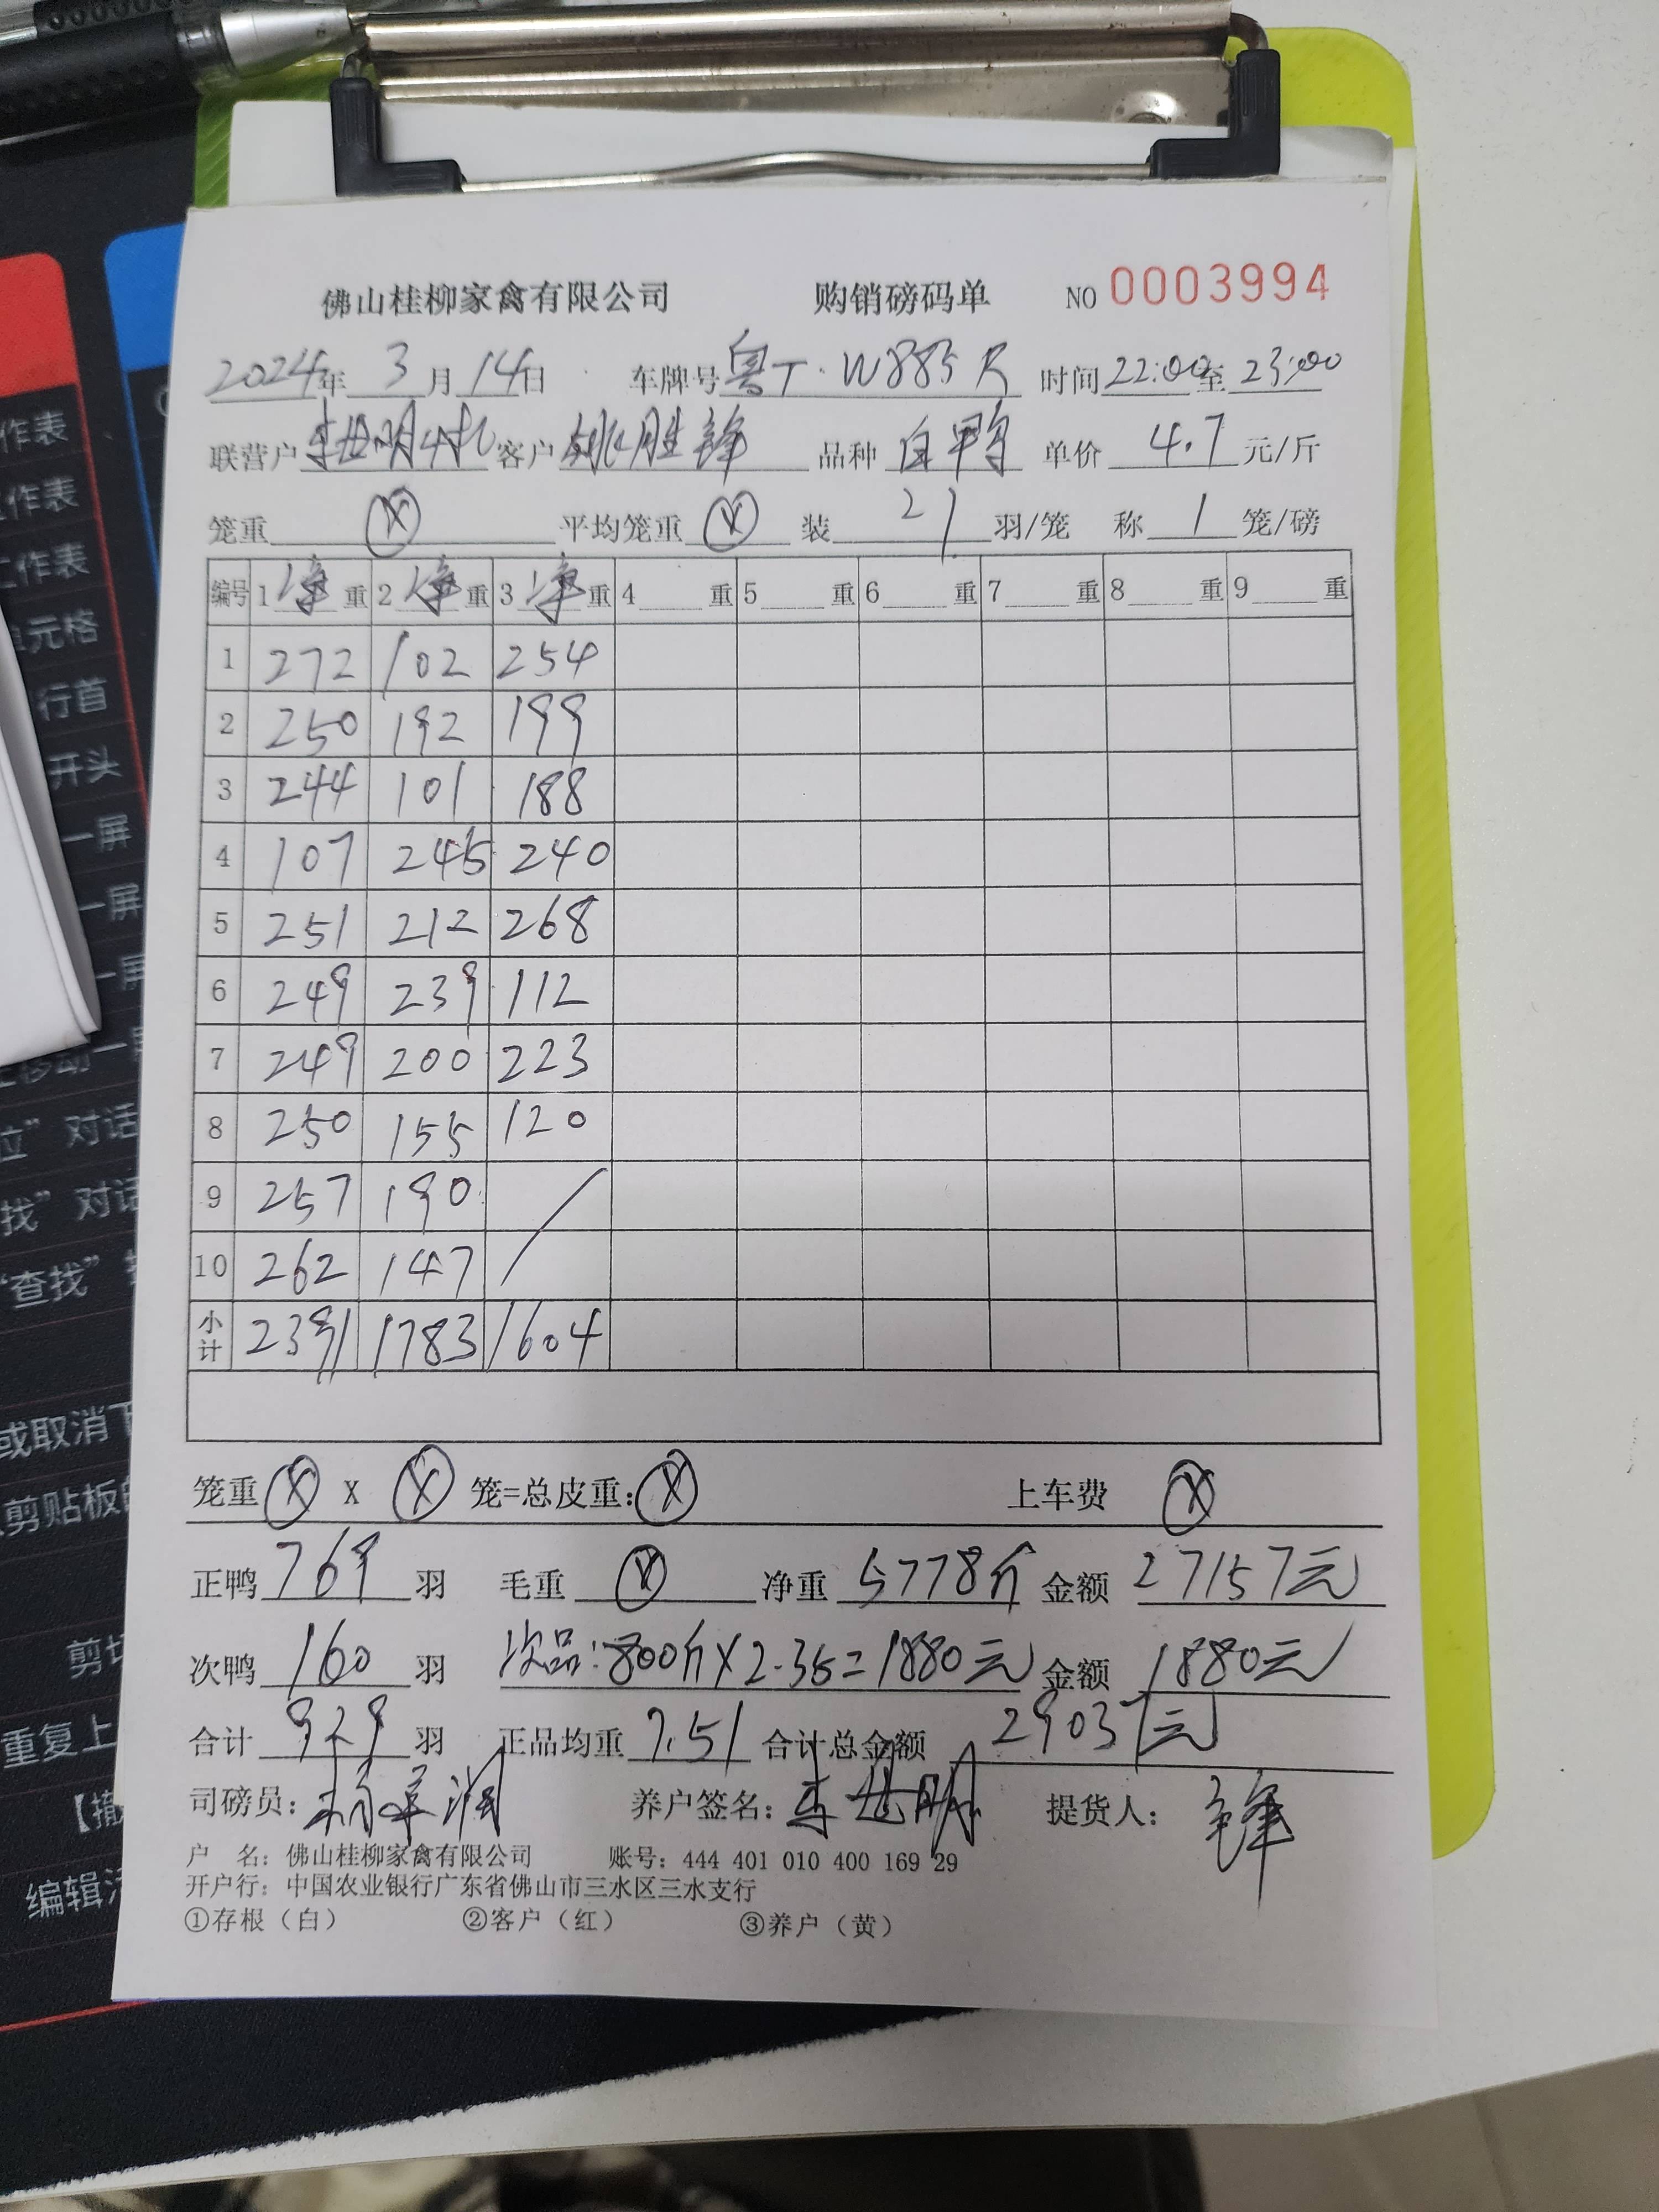 佛山桂柳家禽有限公司 购销磅码单 NO 0003994
2024年 3 月 14日 车牌号 粤T·W885R 时间 22:00至 23:00
联营户 李世明 客户 姚胜锋 品种 白鸭 单价 4.7 元/斤
笼重 ⓧ 平均笼重 ⓧ 装 21 羽/笼 称 1 笼/磅
编号 1 净 重 2 净 重 3 净 重 4 重 5 重 6 重 7 重 8 重 9 重
1 272 102 254
2 250 192 199
3 244 101 188
4 107 245 240
5 251 212 268
6 249 239 112
7 249 200 223
8 250 155 120
9 257 190
10 262 147
小计 2391 1783 1604
笼重 ⓧ X ⓧ 笼=总皮重: ⓧ 上车费 ⓧ
正鸭 769 羽 毛重 ⓧ 净重 5778斤 金额 27157元
次鸭 160 羽 次品:800斤×2.35=1880元 金额 1880元
合计 929 羽 正品均重 7.51 合计总金额 29037元
司磅员: 养户签名: 李世明 提货人: 锋
户 名: 佛山桂柳家禽有限公司 账号: 444 401 010 400 169 29
开户行: 中国农业银行广东省佛山市三水区三水支行
①存根（白） ②客户（红） ③养户（黄）
作表
作表
工作表
元格
行首
开头
一屏
一屏
一屏
位”对话
找”对话
“查找”
或取消
剪贴板
剪切
重复上
【撤
编辑